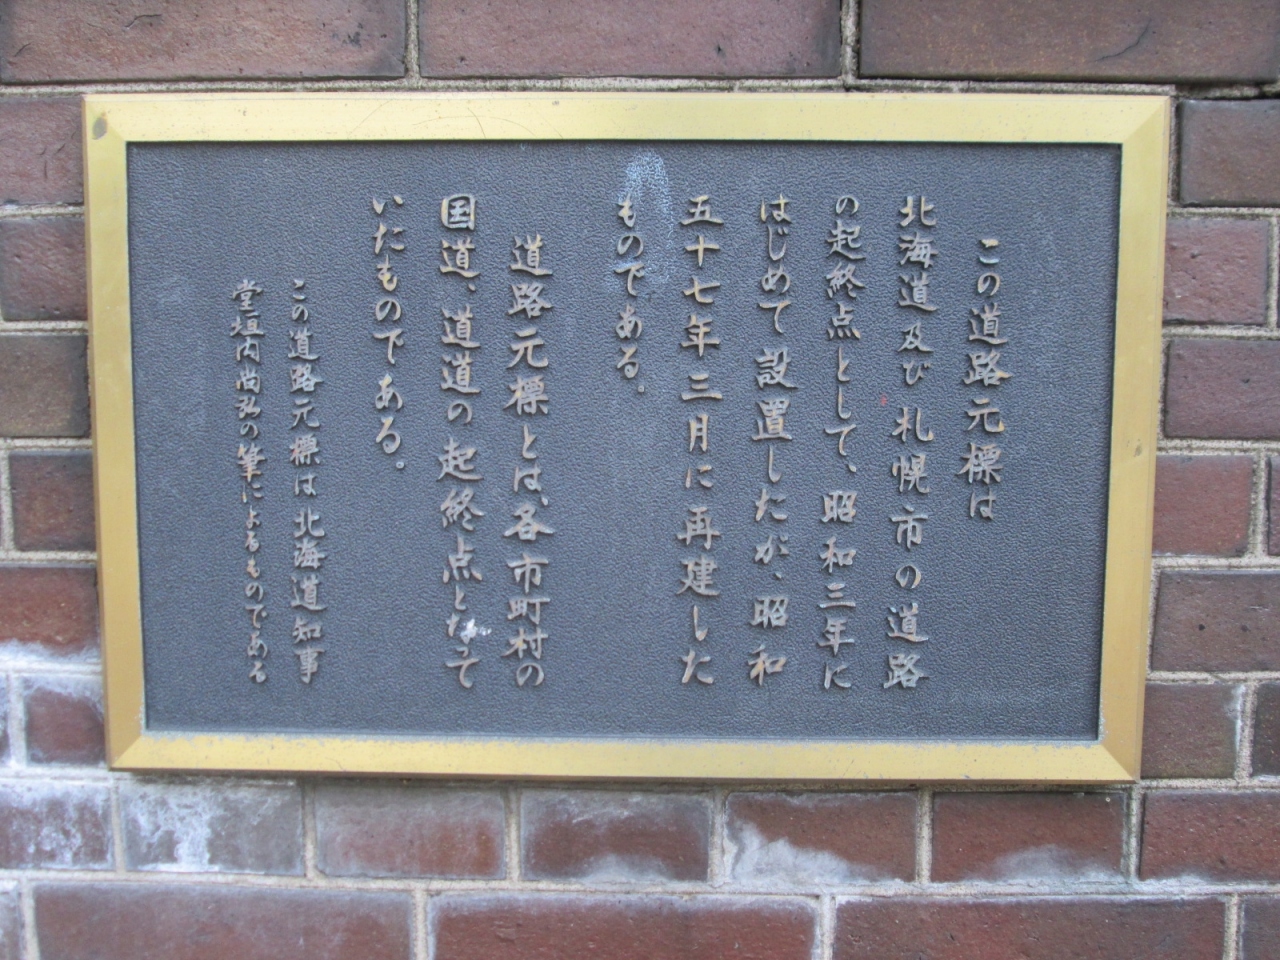 この道路元標は
北海道及び札幌市の道路
の起終点として、昭和三年に
はじめて設置したが、昭和
五十七年三月に再建した
ものである。
道路元標とは、各市町村の
国道、道道の起終点となって
いたものである。
この道路元標は北海道知事
堂垣内尚弘の筆によるものである